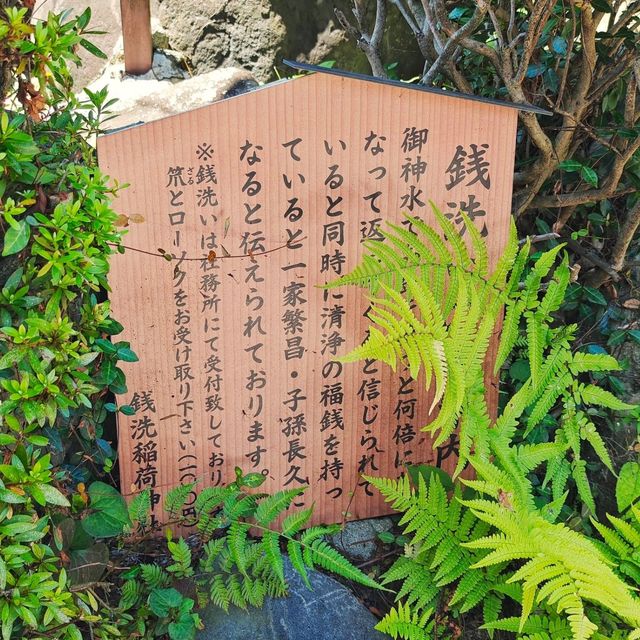 銭洗 内
御神水で と何倍に
なって返 と信じられて
いると同時に清浄の福銭を持っ
ていると一家繁昌・子孫長久に
なると伝えられております。
※銭洗いは社務所にて受付致しており
笊とローソクをお受け取り下さい(一〇〇円)
ざる
銭洗稲荷神社